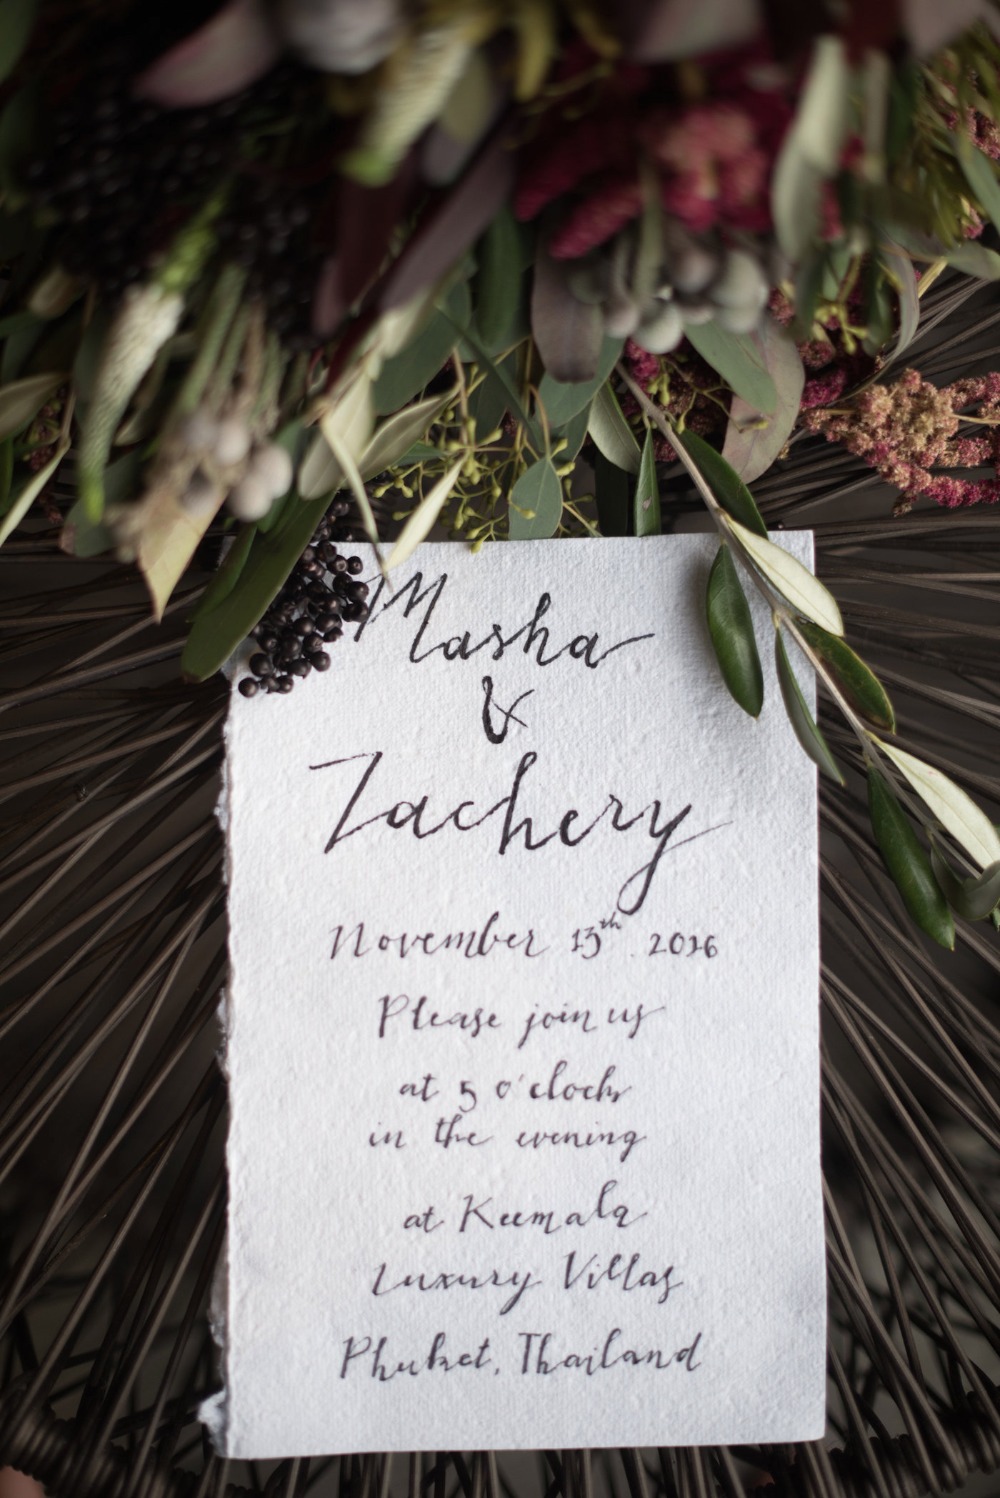 Masha
&
Zachery
November 13th. 2016
Please join us
at 5 o'clock
in the evening
at Keemala
Luxury Villas
Phuket, Thailand